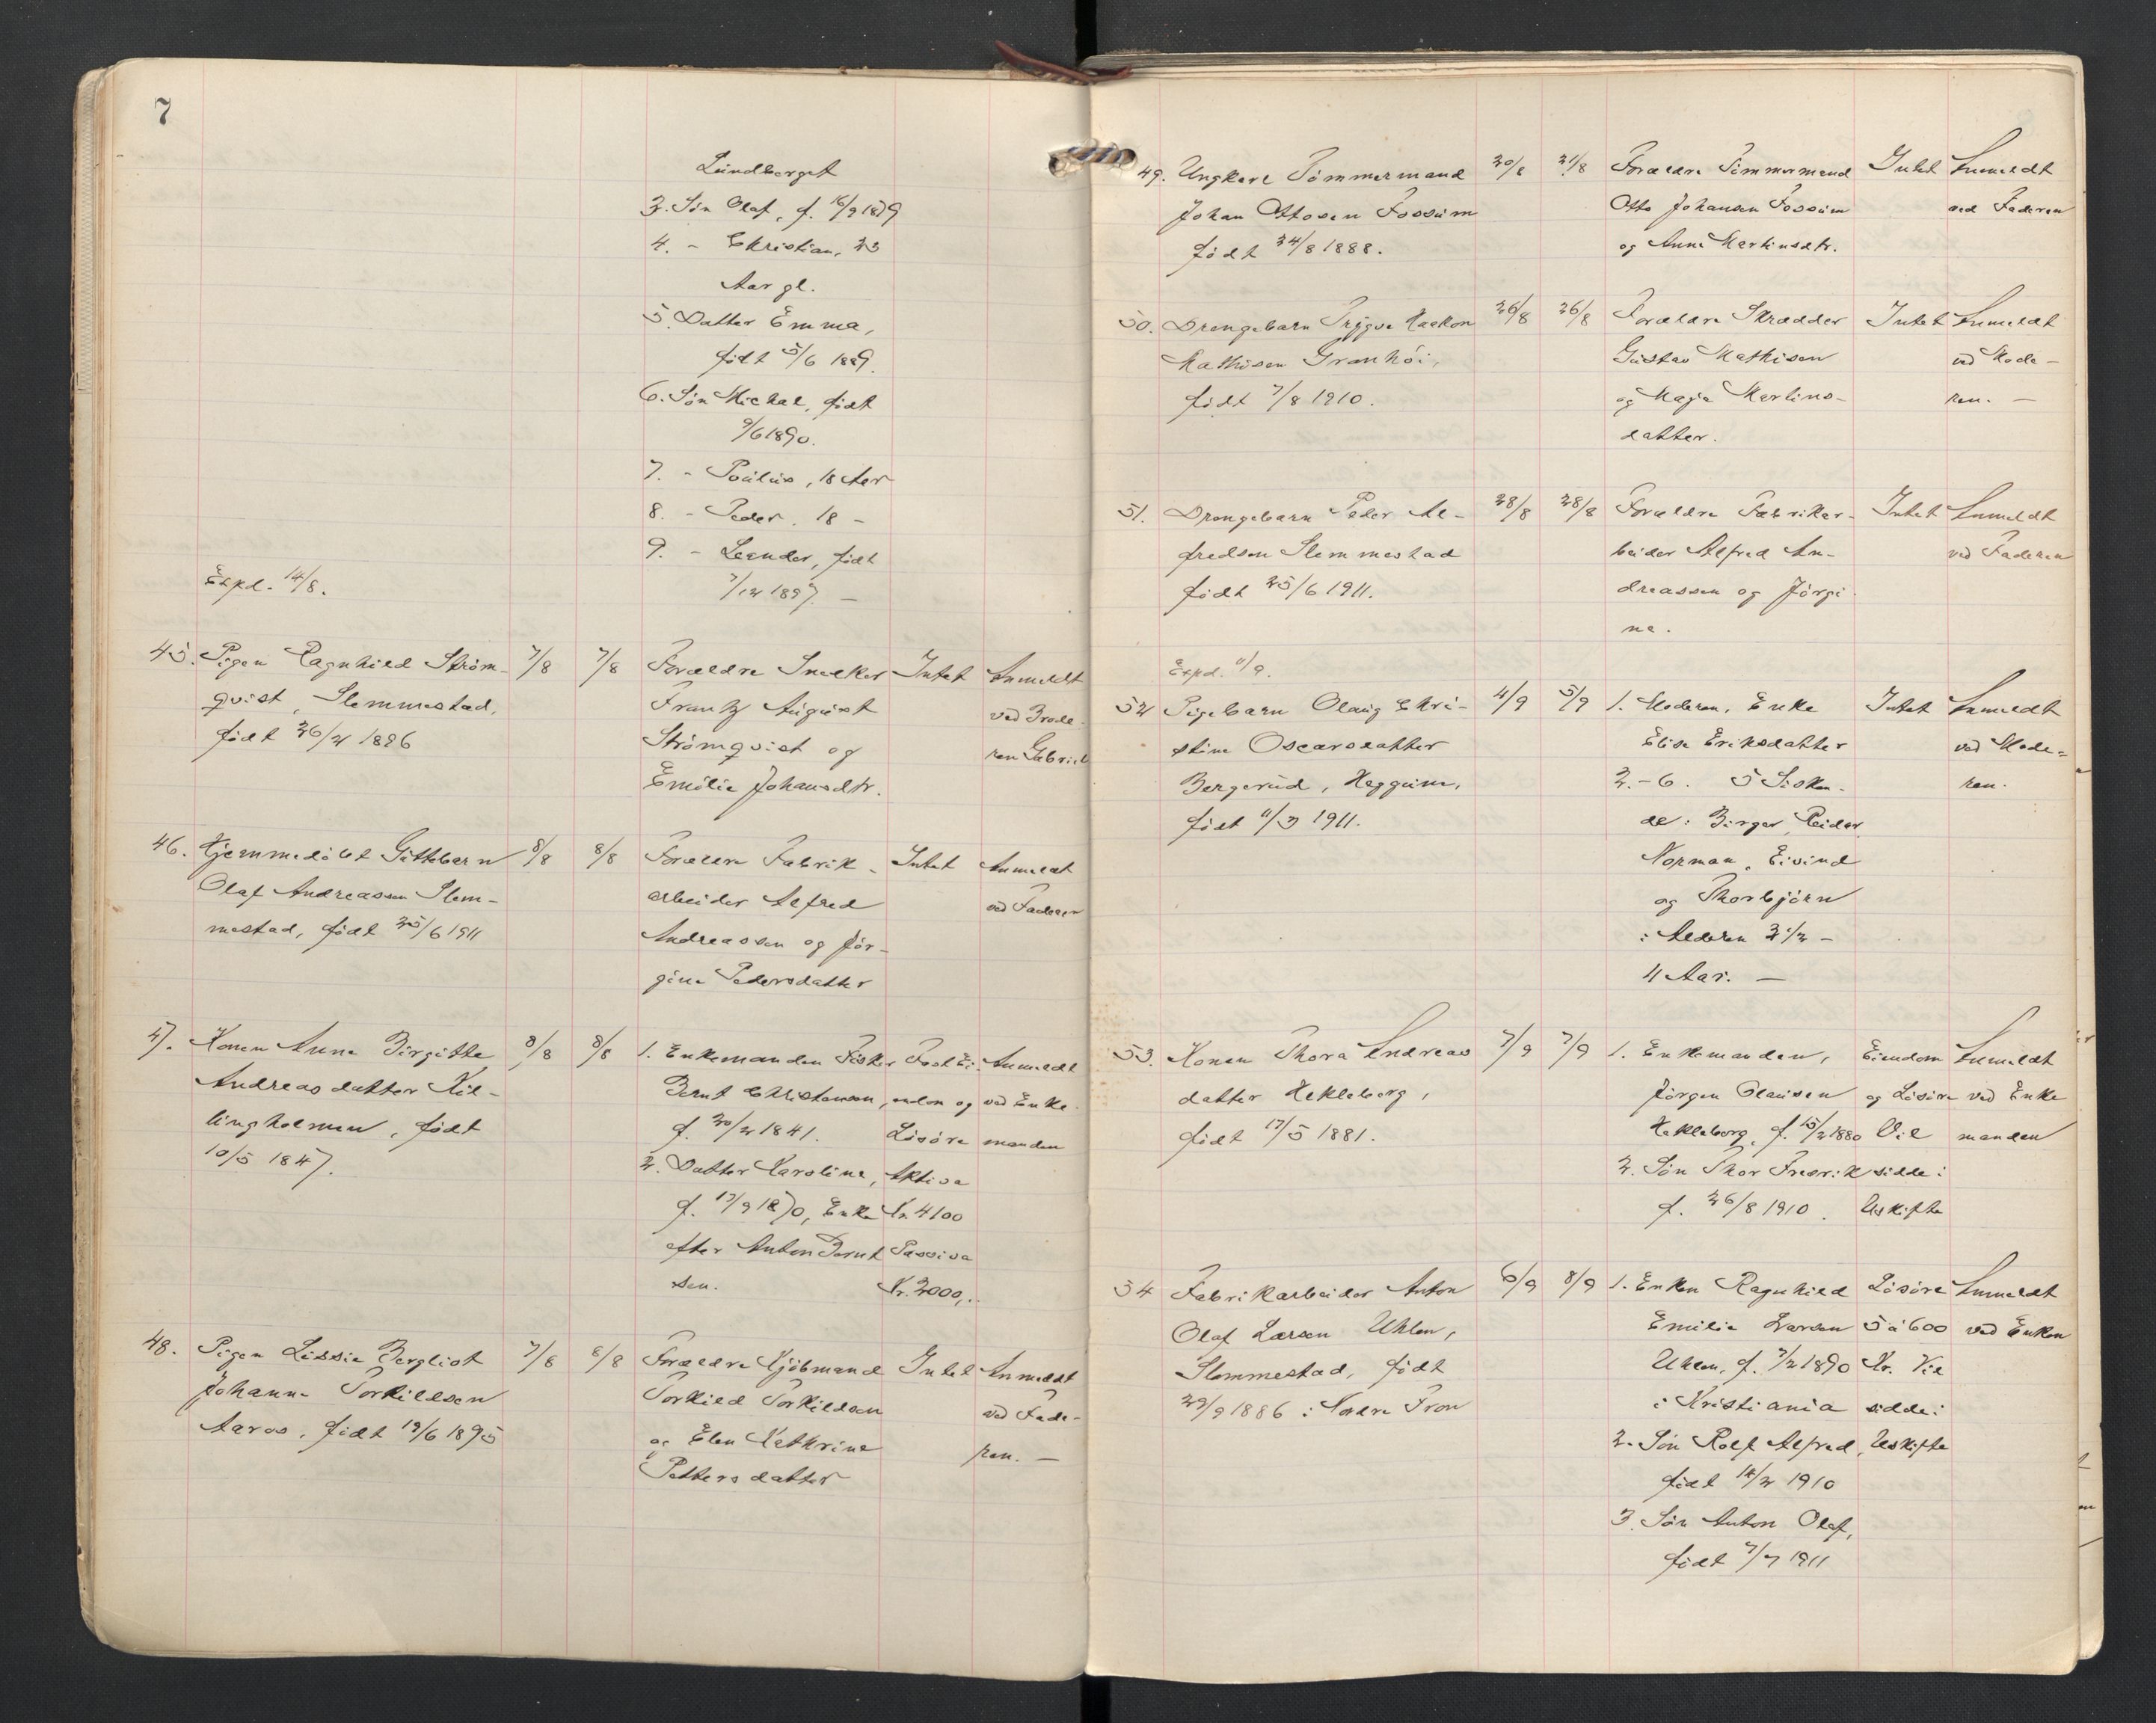 7
Lundberget
3. Søn Olaf, f. 16/9 1879
4. - Christian, 23
Aar gl.
5. Datter Emma,
født 5/6 1889.
6. Søn Michal, født
9/6 1890.
7. - Paulus, 18 Aar
8. - Peder, 18 -
9. - Leander, født
7/12 1897. -
Expd. 14/8.
45. Pigen Ragnhild Strøm- 7/8 7/8 Forældre Snekker Intet Anmeldt
qvist, Slemmestad, Frantz August ved Brode-
født 26/2 1896 Strömqvist og ren Gabriel
Emilie Johansdtr.
46. Hjemmedöbt Guttebarn 8/8 8/8 Forældre Fabrik- Intet Anmeldt
Olaf Andreassen Slem- arbeider Alfred ved Faderen
mestad, født 25/6 1911 Andreassen og Jör-
gine Pedersdatter
47. Konen Anne Birgitte 8/8 8/8 1. Enkemanden Fisker Fast Ei- Anmeldt
Andreasdatter Kil- Bernt Christensen, endom og ved Enke-
lingholmen, født f. 20/2 1841. Lösöre manden
10/5 1847. 2. Datter Karoline, Aktiva
f. 17/9 1870, Enke Kr. 4100
efter Anton Bernt- Passiva
sen. Kr. 2000,-
48. Pigen Lissie Bergliot 7/8 8/8 Forældre Kjöbmand Intet Anmeldt
Johanne Torkildsen Torkild Torkildsen ved Fade-
Aaros, født 19/6 1895 og Elen Kathrine ren. -
Pettersdatter
49. Ungkarl Tömmermand 20/8 21/8 Forældre Tömmermand Intet Anmeldt
Johan Ottosen Fossum Otto Johansen Fossum ved Faderen
født 24/8 1888. og Anne Martinsdtr.
50. Drengebarn Trygve Haakon 26/8 26/8 Forældre Skrædder Intet Anmeldt
Mathisen Granhöi, Gustav Mathisen ved Mode-
født 7/8 1910. og Maja Martins- ren. -
datter.
51. Drengebarn Peder Al- 28/8 28/8 Forældre Fabrikar- Intet Anmeldt
fredsen Slemmestad beider Alfred An- ved Faderen
født 25/6 1911. dreassen og Jörgi-
ne.
Expd. 11/9.
52 Pigebarn Olaug Chri- 4/9 5/9 1. Moderen, Enke Intet Anmeldt
stine Oscarsdatter Elise Eriksdatter ved Mode-
Bergerud, Heggum, 2.-6. 5 Sösken- ren.
født 11/3 1911. de: Birger, Reidar,
Norman, Eivind
og Thorbjörn
i Alderen 2 1/2 -
11 Aar. -
53. Konen Thora Andreas 7/9 7/9 1. Enkemanden, Eiendom Anmeldt
datter Hekleberg, Jörgen Olausen og Lösöre ved Enke
født 17/5 1881. Hekleberg, f. 15/2 1880 Vil manden
2. Søn Thor Fredrik sidde i
f. 26/8 1910. Uskifte
54 Fabrikarbeider Anton 6/9 8/9 1. Enken Ragnhild Lösöre Anmeldt
Olaf Larsen Uhlen, Emilie Larsen 5 à 600 ved Enken
Slemmestad, født Uhlen, f. 7/2 1890 Kr. Vil
29/9 1886 i Nordre Fron i Kristiania sidde i
2. Søn Rolf Alfred, Uskifte
født 14/2 1910
3. Søn Anton Olaf,
født 7/7 1911